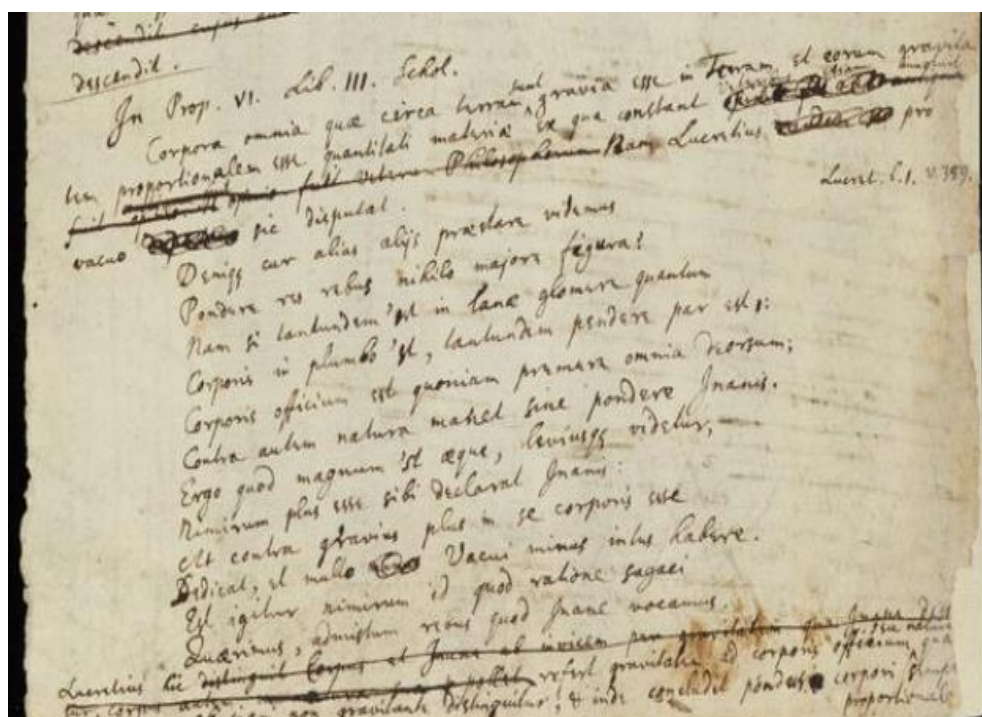 descendit.
In Prop. VI. Lib. III. Schol.
Corpora omnia quæ circa terram sunt gravia esse in Terram, et eorum gravita
tem proportionalem esse quantitati materiæ ex qua constant
fuit veterum Philosophorum Nam Lucretius pro
Lucret. l. 1. v. 359.
vacuo sic disputat.
Deniqꝫ cur alias alijs præstare videmus
Pondere res rebus nihilo majore figura?
Nam si tantundem 'st in lanæ glomere quantum
Corporis in plumbo 'st, tantundem pendere par est;
Corporis officium est quoniam premere omnia deorsum;
Contra autem natura manet sine pondere Inanis.
Ergo quod magnum 'st æque, leviusqꝫ videtur,
Nimirum plus esse sibi declarat Inanis:
At contra gravius plus in se corporis esse
Dedicat, et multo Vacui minus intus habere.
Est igitur nimirum id quod ratione sagaci
Quærimus, admistum rebus quod Inane vocamus.
Lucretius hic distinguit Corpus et Inane ab invicem per gravitatem
refert gravitatem ad corporis officium
non gravitante distinguitur; & inde concludit pondus corpori
proportionale